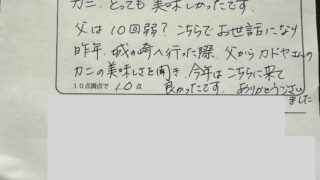 カニ、とっても美味しかったです。
父は10回弱?こちらでお世話になり
昨年、城の崎へ行った際、父からカドヤさんの
カニの美味しさを聞き、今年はこちらに来て
10点満点で 10 点 良かったです。ありがとうござい
ました